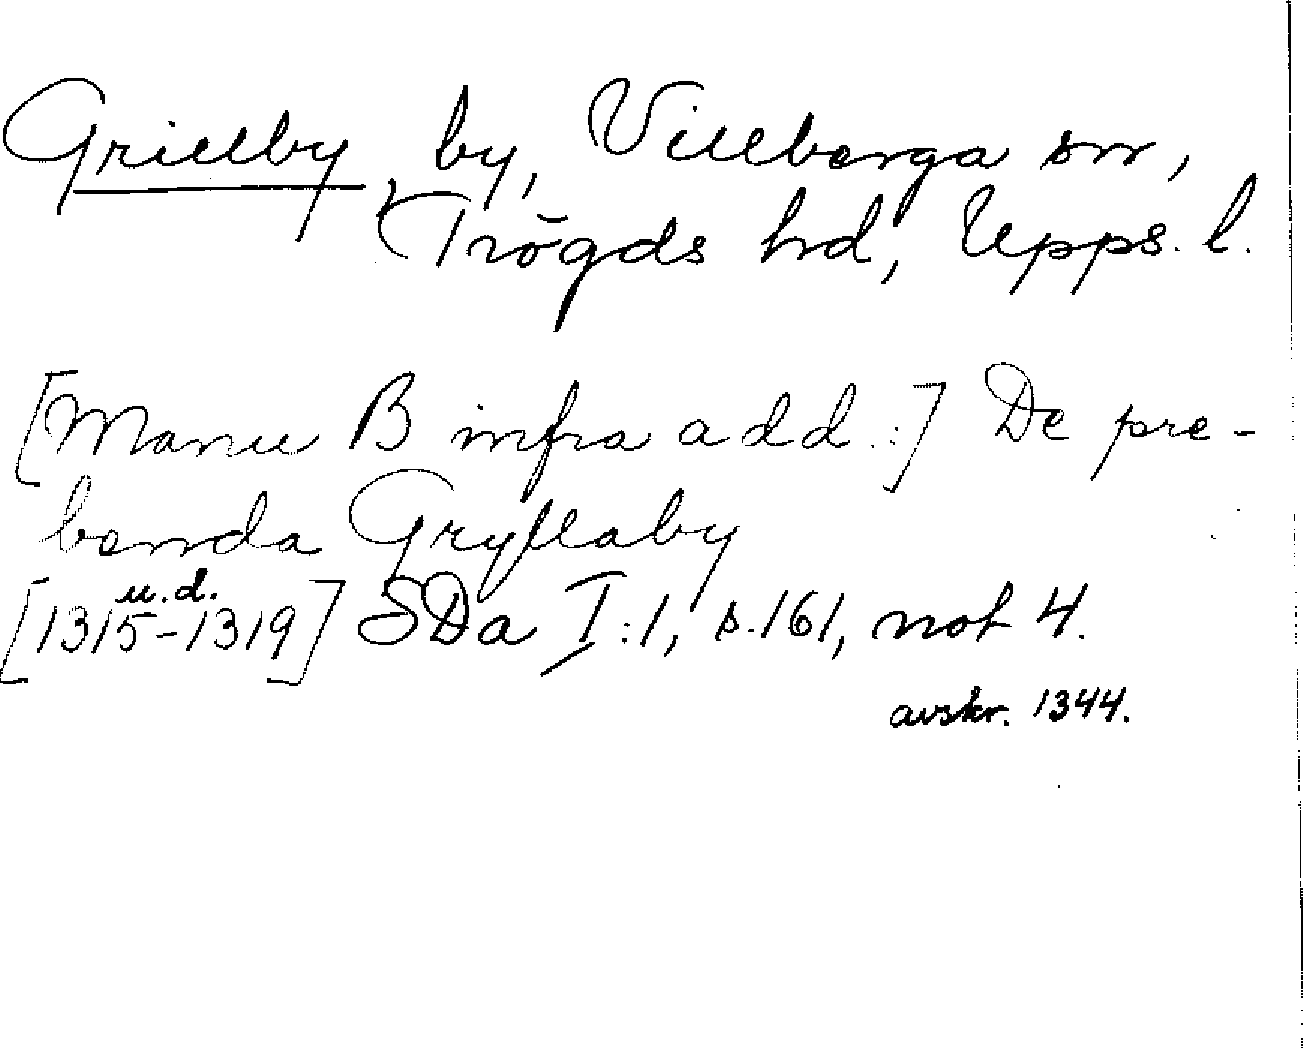 Grillby by, Villberga sn,
Trögds hd, Upps. l.
[Manu B infra add.:] De pre-
benda Gryllaby
u.d.
[1315-1319] SDa I:1, s. 161, not 4.
avskr. 1344.